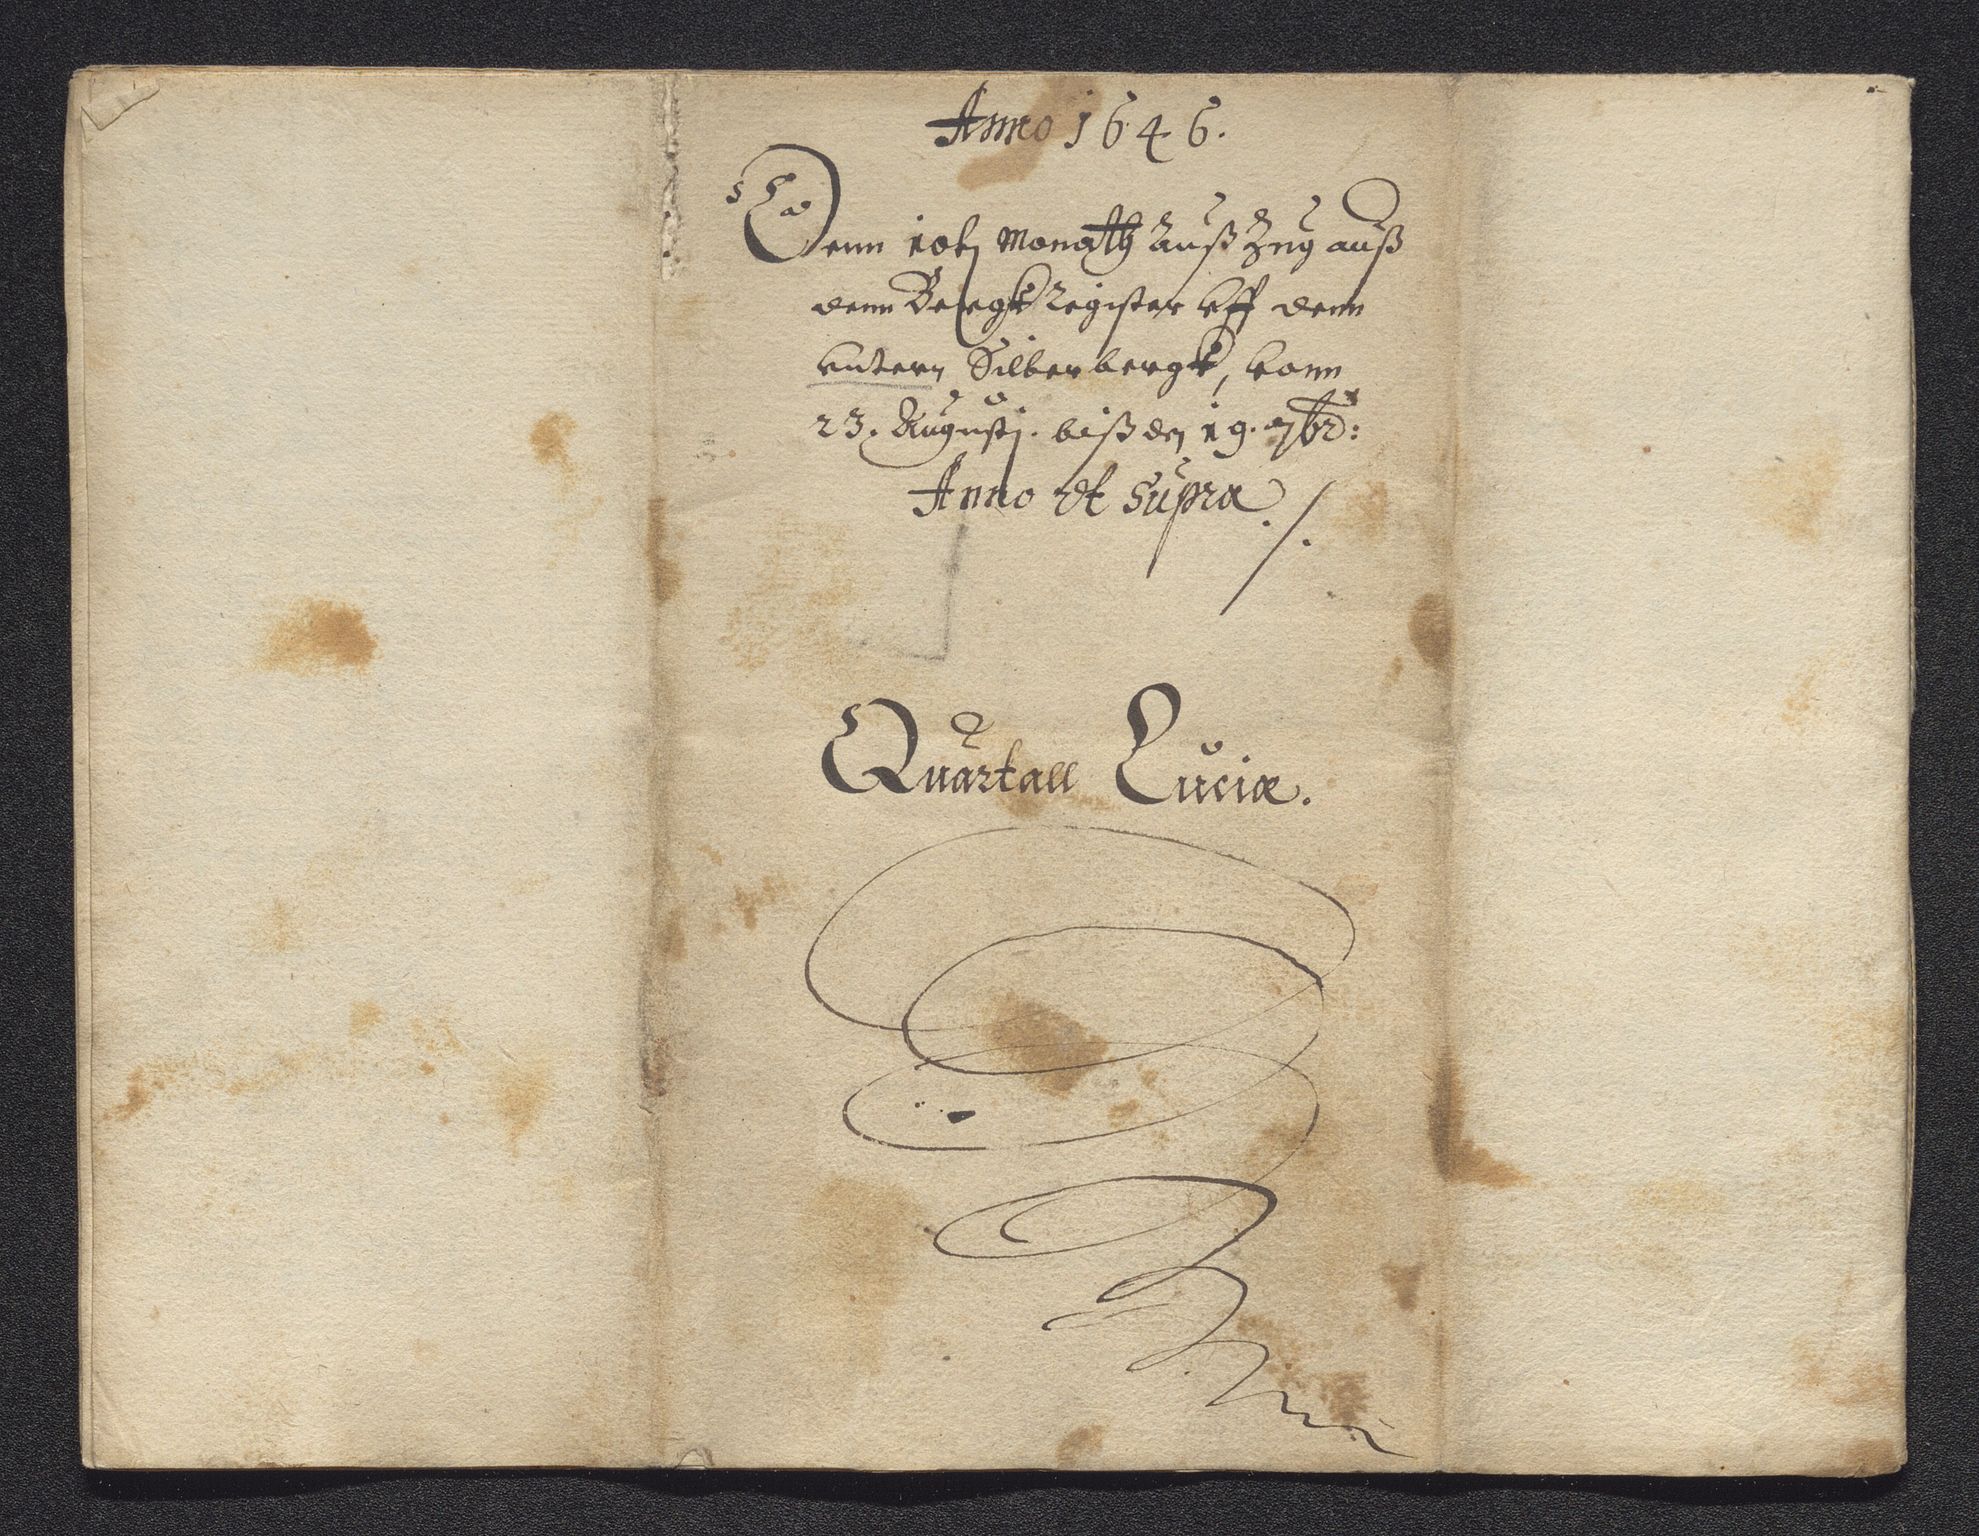 Anno 1646.
Denn 10tn Monath Auß Zug auß
denn Bergk Register vff denn
vntern Silberbergk, vonn
23. Augustj. biß den 19. 7br:
Anno Vt Supra ./.
Quartall Luciæ.